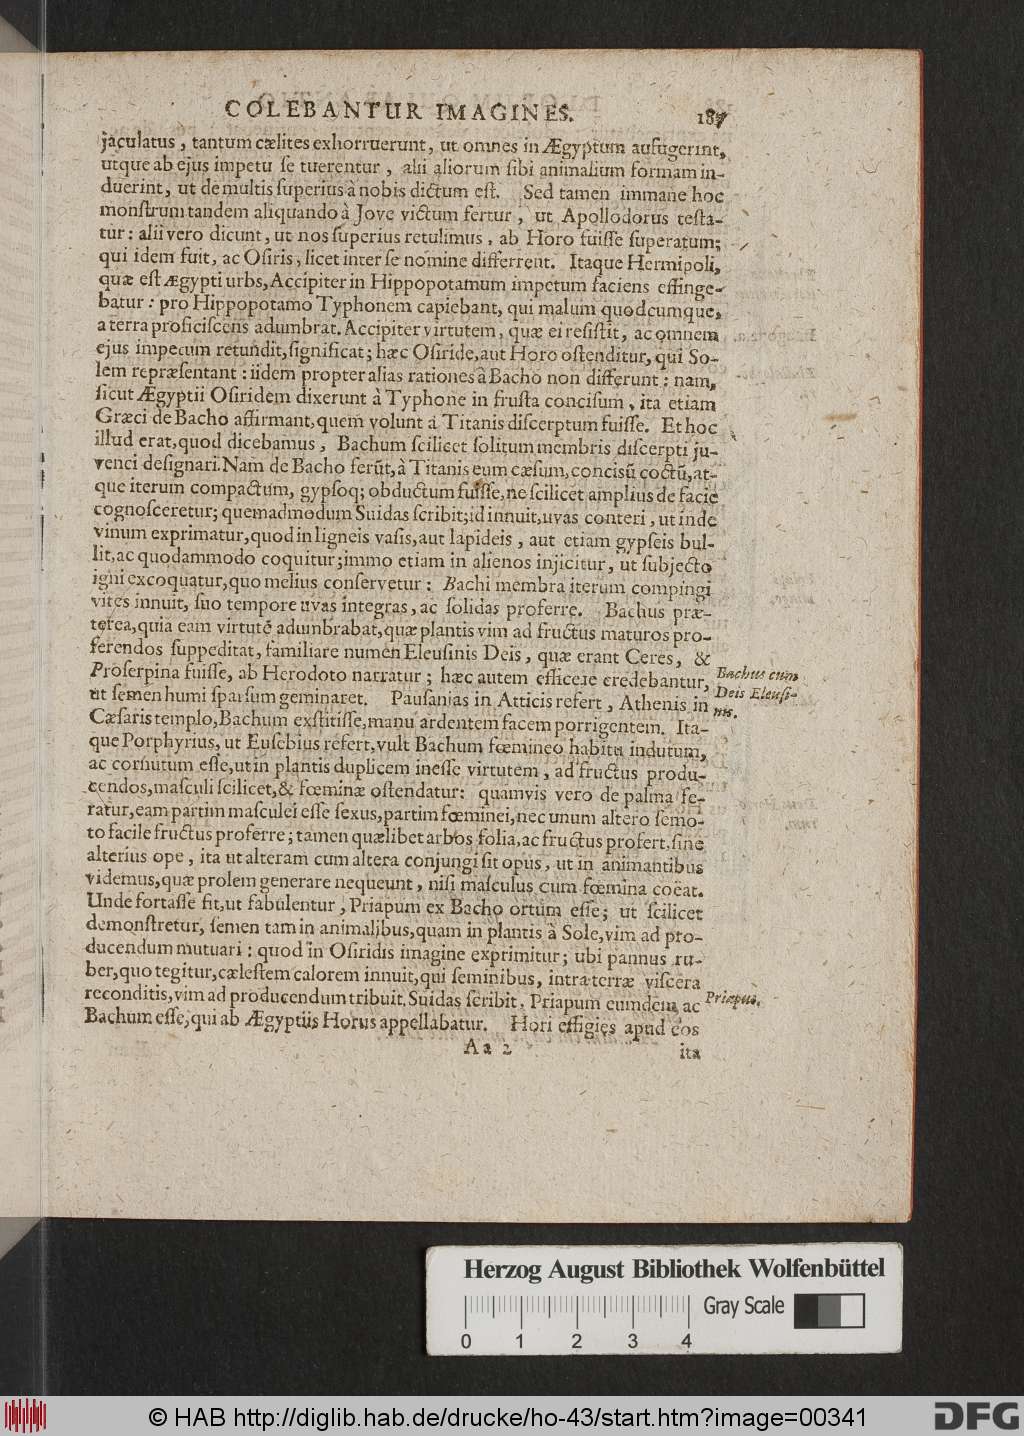 COLEBANTUR IMAGINES. 187
jaculatus, tantum cælites exhorruerunt, ut omnes in Ægyptum aufugerint,
utque ab ejus impetu ſe tuerentur, alii aliorum ſibi animalium formam in-
duerint, ut de multis ſuperius à nobis dictum eſt. Sed tamen immane hoc
monſtrum tandem aliquando à Jove victum fertur, ut Apollodorus teſta-
tur: alii vero dicunt, ut nos ſuperius retulimus, ab Horo fuiſſe ſuperatum;
qui idem fuit, ac Oſiris, licet inter ſe nomine differrent. Itaque Hermipoli,
quæ eſt Ægypti urbs, Accipiter in Hippopotamum impetum faciens effinge-
batur: pro Hippopotamo Typhonem capiebant, qui malum quodcumque,
a terra proficiſcens adumbrat. Accipiter virtutem, quæ ei reſiſtit, ac omnem
ejus impetum retundit, ſignificat; hæc Oſiride, aut Horo oſtenditur, qui So-
lem repræſentant: iidem propter alias rationes à Bacho non differunt: nam,
ſicut Ægyptii Oſiridem dixerunt à Typhone in fruſta conciſum, ita etiam
Græci de Bacho affirmant, quem volunt à Titanis diſcerptum fuiſſe. Et hoc
illud erat, quod dicebamus, Bachum ſcilicet ſolitum membris diſcerpti ju-
venci deſignari. Nam de Bacho ferūt, à Titanis eum cæſum, conciſū coctū, at-
que iterum compactum, gypſoq; obductum fuiſſe, ne ſcilicet amplius de facie
cognoſceretur; quemadmodum Suidas ſcribit; id innuit, uvas conteri, ut inde
vinum exprimatur, quod in ligneis vaſis, aut lapideis, aut etiam gypſeis bul-
lit, ac quodammodo coquitur; immo etiam in alienos injicitur, ut ſubjecto
igni excoquatur, quo melius conſervetur: Bachi membra iterum compingi
vites innuit, ſuo tempore uvas integras, ac ſolidas proferre. Bachus præ-
terea, quia eam virtutē adumbrabat, quæ plantis vim ad fructus maturos pro-
ferendos ſuppeditat, familiare numen Eleuſinis Deis, quæ erant Ceres, &
Proſerpina fuiſſe, ab Herodoto narratur; hæc autem efficere credebantur, Bachus cum
ut ſemen humi ſparſum geminaret. Pauſanias in Atticis refert, Athenis in Deis Eleuſi-
Cæſaris templo, Bachum exſtitiſſe, manu ardentem facem porrigentem. Ita- nis.
que Porphyrius, ut Euſebius refert, vult Bachum fœmineo habitu indutum,
ac cornutum eſſe, ut in plantis duplicem ineſſe virtutem, ad fructus produ-
cendos, maſculi ſcilicet, & fœminæ oſtendatur: quamvis vero de palma fe-
ratur, eam partim maſculei eſſe ſexus, partim fœminei, nec unum altero ſemo-
to facile fructus proferre; tamen quælibet arbos folia, ac fructus profert, ſine
alterius ope, ita ut alteram cum altera conjungi ſit opus, ut in animantibus
videmus, quæ prolem generare nequeunt, niſi maſculus cum fœmina coëat.
Unde fortaſſe fit, ut fabulentur, Priapum ex Bacho ortum eſſe; ut ſcilicet
demonſtretur, ſemen tam in animalibus, quam in plantis à Sole, vim ad pro-
ducendum mutuari: quod in Oſiridis imagine exprimitur; ubi pannus ru-
ber, quo tegitur, cæleſtem calorem innuit, qui ſeminibus, intra terræ viſcera
reconditis, vim ad producendum tribuit. Suidas ſcribit, Priapum eumdem ac Priapus.
Bachum eſſe, qui ab Ægyptiis Horus appellabatur. Hori effigies apud eos
Aa 2 ita
Herzog August Bibliothek Wolfenbüttel
Gray Scale
0 1 2 3 4
© HAB http://diglib.hab.de/drucke/ho-43/start.htm?image=00341
DFG